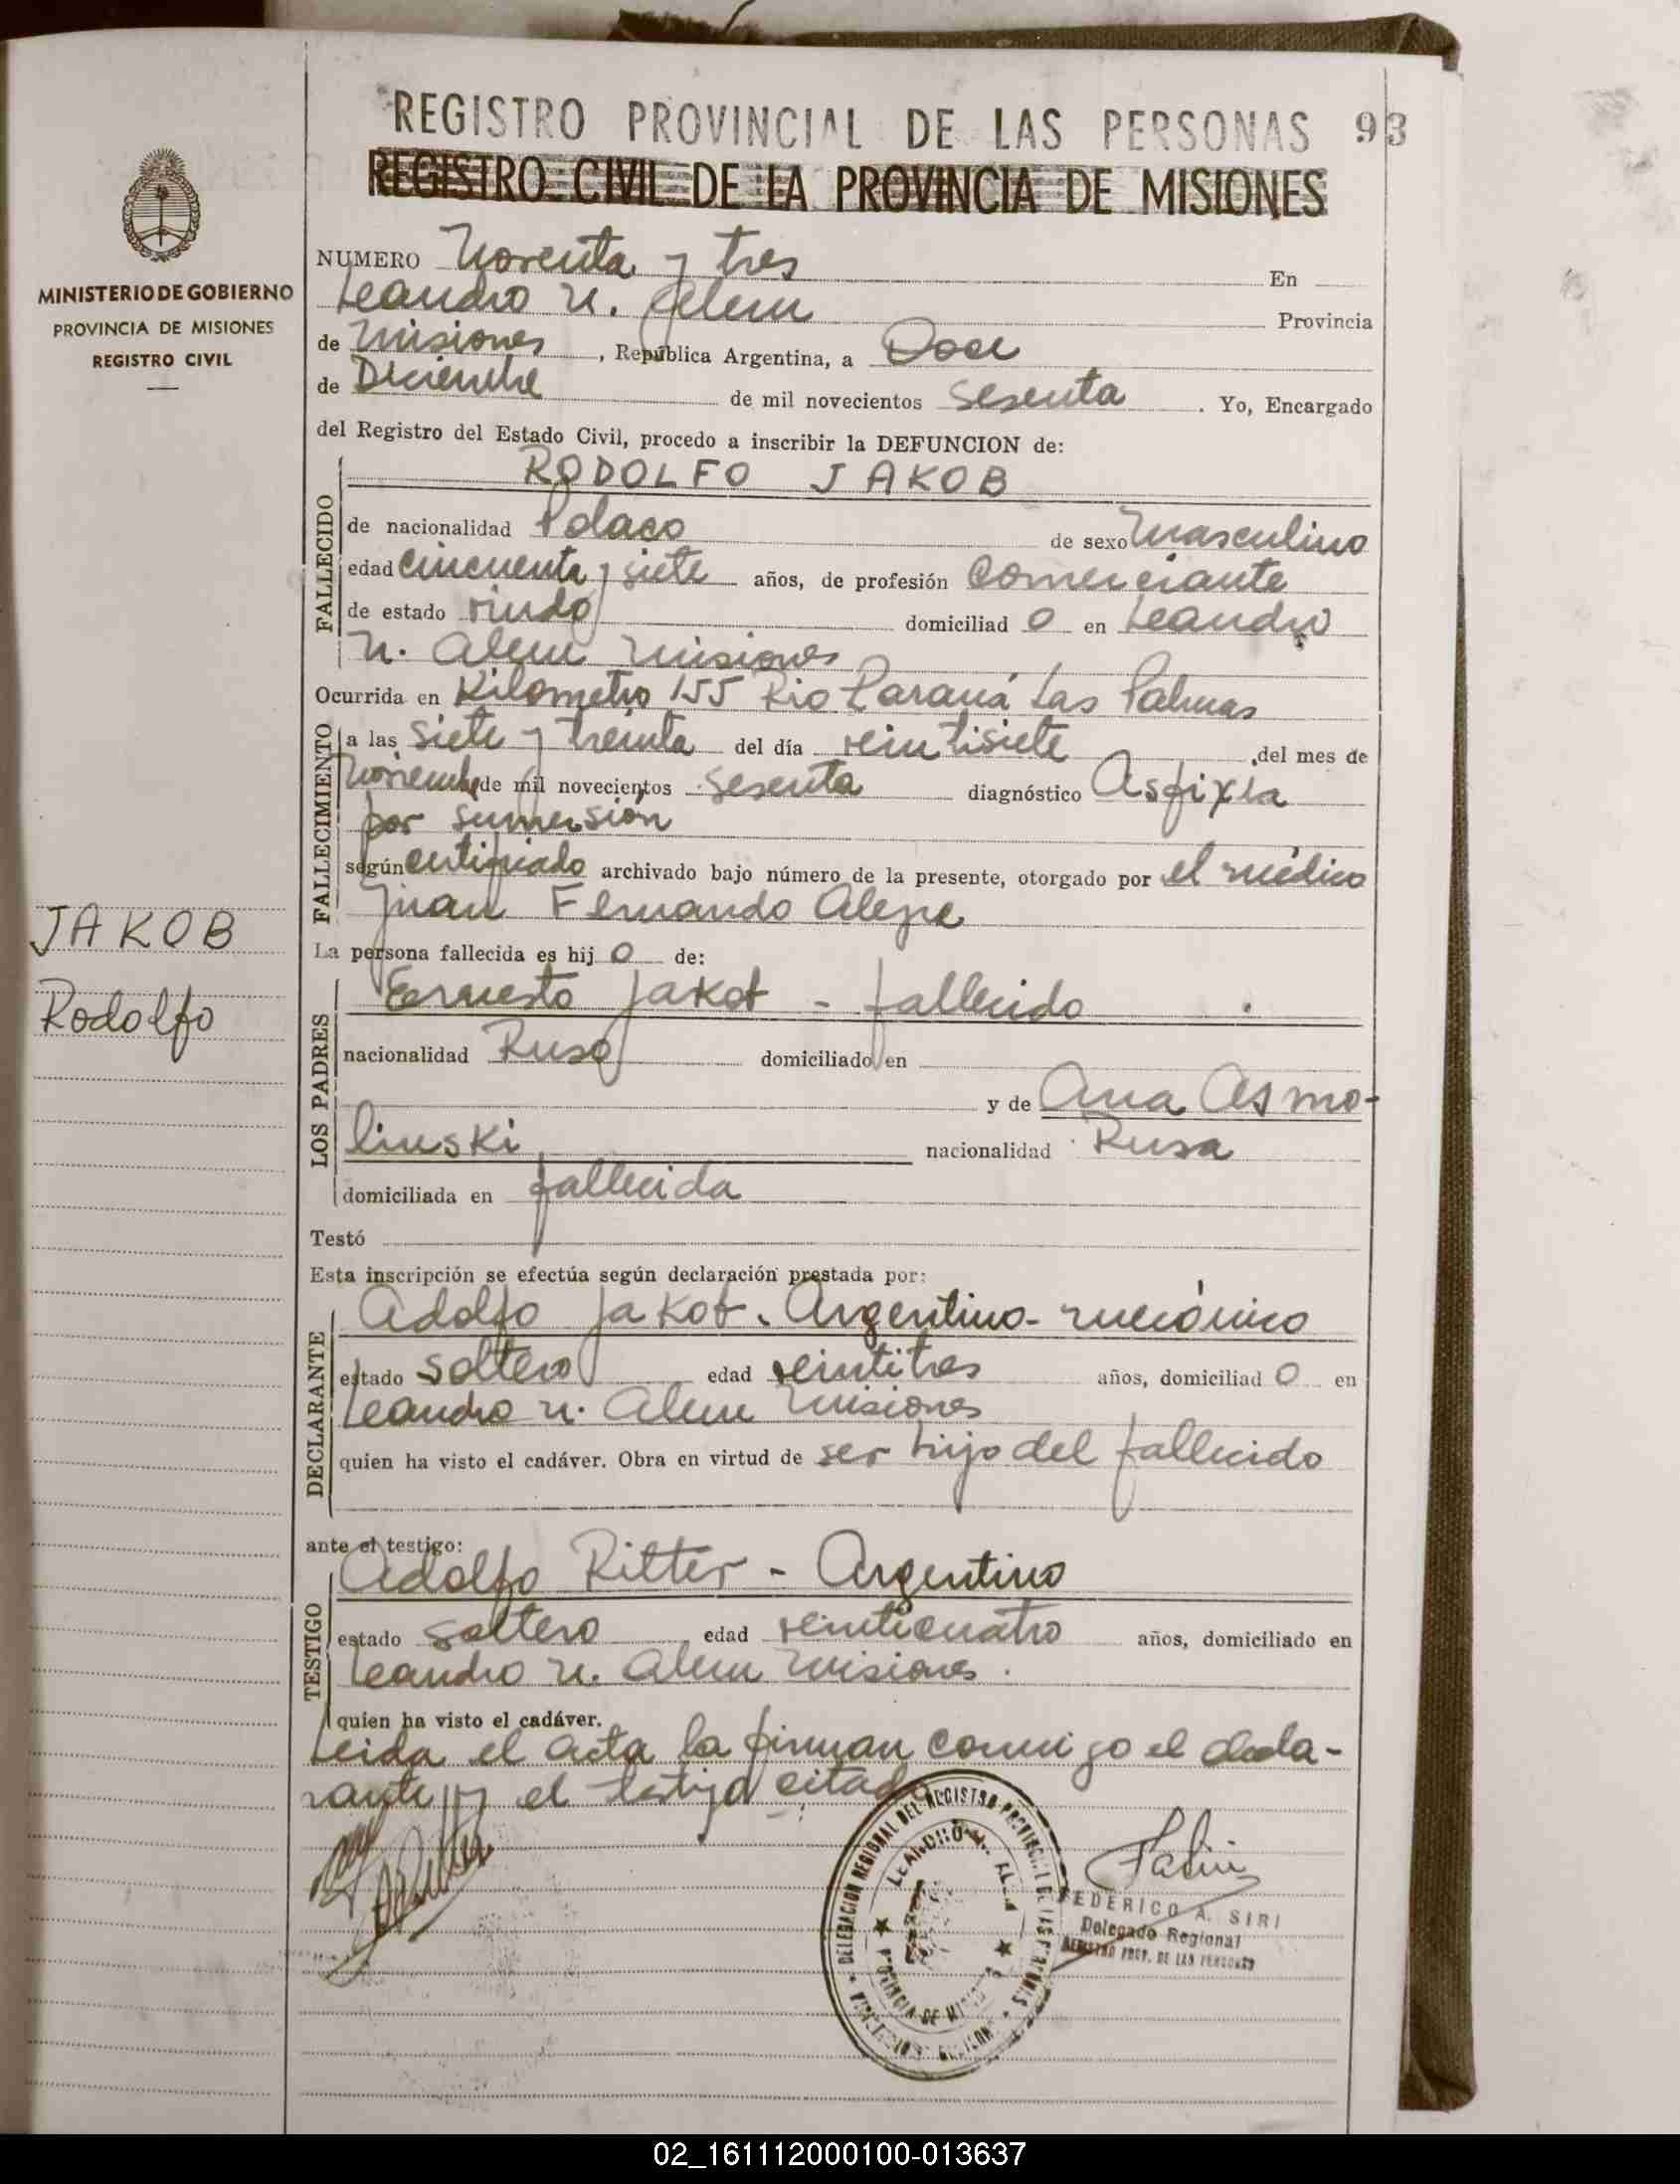 REGISTRO PROVINCIAL DE LAS PERSONAS 93
REGISTRO CIVIL DE LA PROVINCIA DE MISIONES
MINISTERIO DE GOBIERNO
PROVINCIA DE MISIONES
REGISTRO CIVIL
NUMERO Noventa y tres En
Leandro N. Alem Provincia
de Misiones, República Argentina, a Doce
de Diciembre de mil novecientos sesenta. Yo, Encargado
del Registro del Estado Civil, procedo a inscribir la DEFUNCION de:
FALLECIDO
RODOLFO JAKOB
de nacionalidad Polaco de sexo Masculino
edad cincuenta y siete años, de profesión Comerciante
de estado viudo domiciliad o en Leandro
N. Alem Misiones
Ocurrida en Kilometro 155 Rio Paraná Las Palmas
FALLECIMIENTO
a las siete y treinta del día veintisiete, del mes de
Noviembre de mil novecientos sesenta diagnóstico Asfixia
por sumersión
según certificado archivado bajo número de la presente, otorgado por el médico
Juan Fernando
JAKOB
Rodolfo
La persona fallecida es hij o de:
LOS PADRES
Ernesto Jakob - fallecido
nacionalidad Ruso domiciliado en
y de Ana Asmo-
linski nacionalidad Rusa
domiciliada en fallecida
Testó
Esta inscripción se efectúa según declaración prestada por:
DECLARANTE
Adolfo Jakob. Argentino - mecánico
estado soltero edad veintitres años, domiciliad o en
Leandro N. Alem Misiones
quien ha visto el cadáver. Obra en virtud de ser hijo del fallecido
ante el testigo:
TESTIGO
Adolfo Ritter - Argentino
estado soltero edad veinticuatro años, domiciliado en
Leandro N. Alem Misiones.
quien ha visto el cadáver.
Leida el acta la firman conmigo el decla-
rante y el testigo citado
DELEGACION REGIONAL DEL REGISTRO PROVINCIAL DE LAS PERSONAS
LEANDRO N. ALEM
PROVINCIA DE MISIONES
FEDERICO A. SIRI
Delegado Regional
REGISTRO PROV. DE LAS PERSONAS
02_161112000100-013637